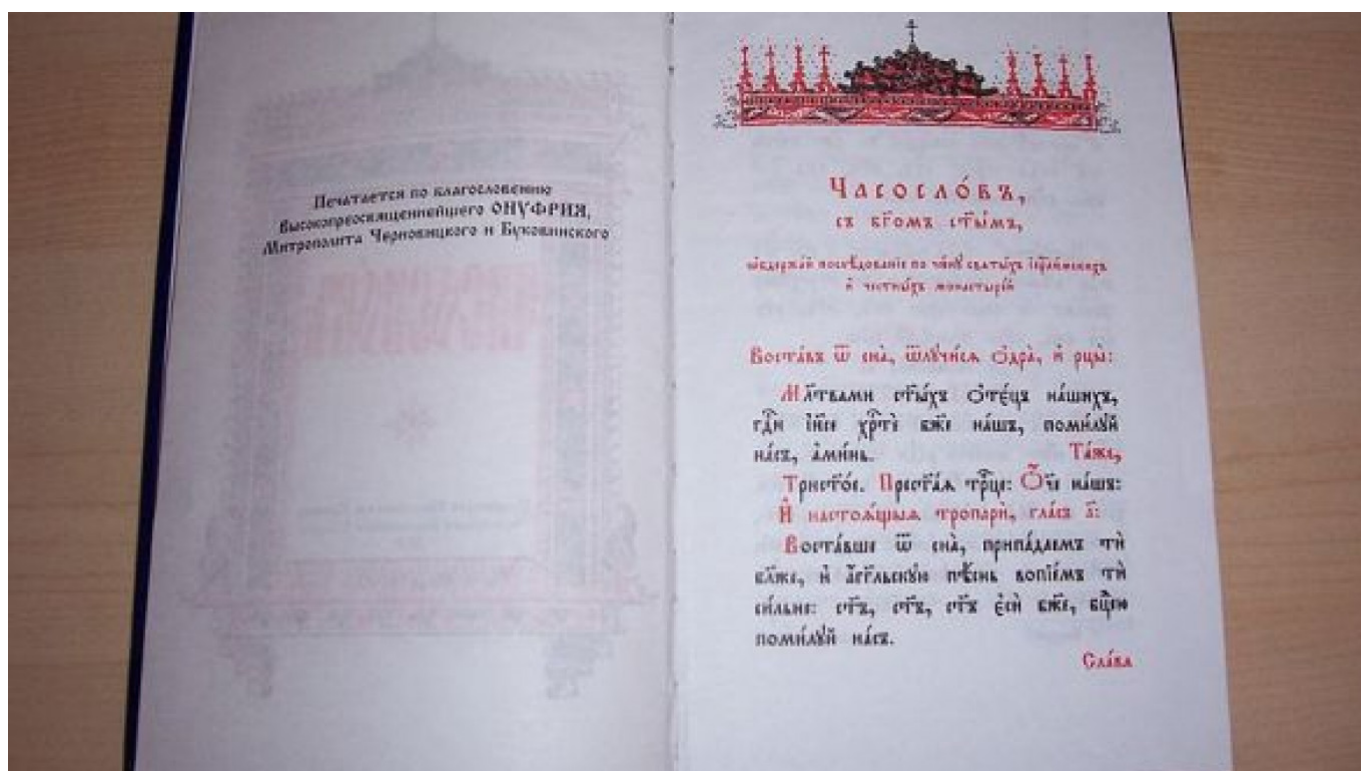 Печатается по благословению
Высокопреосвященнейшего ОНУФРИЯ,
Митрополита Черновицкого и Буковинского
Часосло́въ,
съ бг҃омъ ст҃ы́мъ,
ѡ҆бдержа́й послѣ́дованїе по чи́нꙋ свѧты́хъ і҆ерⷭ҇ли́мскихъ
и҆ честны́хъ монастыри́й
Воста́въ ѿ сна̀, ѿлꙋчи́сѧ ѻ҆дра̀, и҆ рцы̀:
Мл҃твами ст҃ы́хъ ѻ҆тє́цъ на́шихъ,
гдⷭ҇и і҆и҃се хрⷭ҇тѐ бж҃е на́шъ, поми́лꙋй
на́съ, а҆ми́нь. Та́же,
Трист҃о́е. Прест҃а́ѧ трⷪ҇це: Ѻ҆́ч҃е на́шъ:
И҆ настоѧ́щыѧ тропарѝ, гла́съ а҃:
Воста́вше ѿ сна̀, припа́даемъ тѝ
бл҃же, и҆ а҆́гг҃льскꙋю пѣ́снь вопїе́мъ тѝ
си́льне: ст҃ъ, ст҃ъ, ст҃ъ є҆сѝ бж҃е, бцⷣею
поми́лꙋй на́съ.
Сла́ва